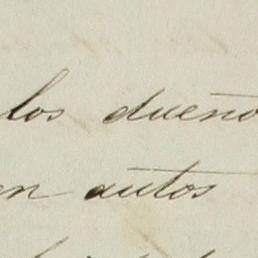 los dueño
en autos